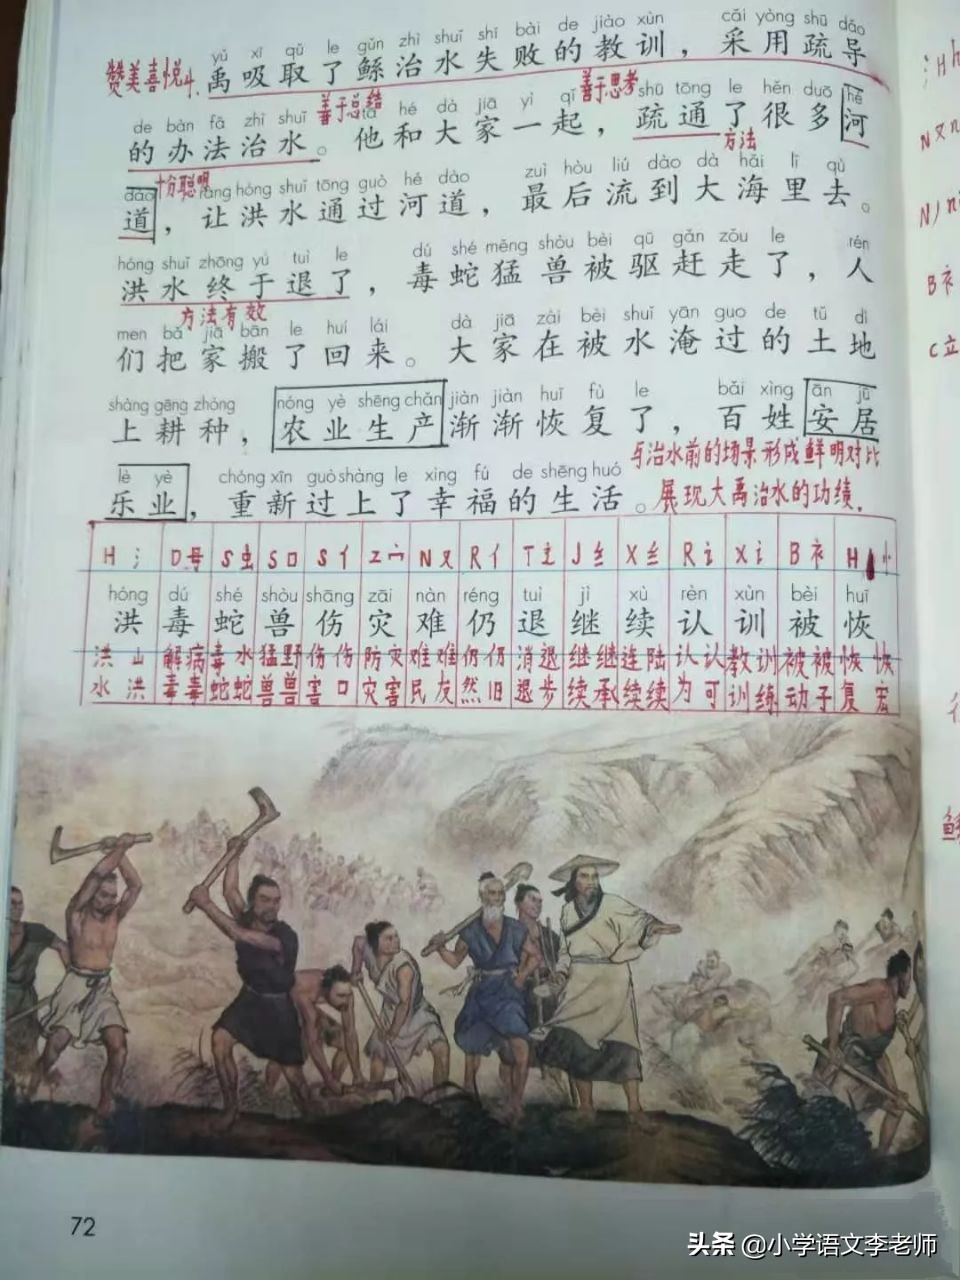 yǔ xī qǔ le gǔn zhì shuǐ shī bài de jiào xùn cǎi yòng shū dǎo
赞美喜悦
禹吸取了鲧治水失败的教训，采用疏导
善于总结 善于思考
de bàn fǎ zhì shuǐ tā hé dà jiā yì qǐ shū tōng le hěn duō hé
的办法治水。他和大家一起，疏通了很多河
十分聪明 方法
dào ràng hóng shuǐ tōng guò hé dào zuì hòu liú dào dà hǎi lǐ qù
道，让洪水通过河道，最后流到大海里去。
hóng shuǐ zhōng yú tuì le dú shé měng shòu bèi qū gǎn zǒu le rén
洪水终于退了，毒蛇猛兽被驱赶走了，人
方法有效
men bǎ jiā bān le huí lái dà jiā zài bèi shuǐ yān guo de tǔ dì
们把家搬了回来。大家在被水淹过的土地
shàng gēng zhòng nóng yè shēng chǎn jiàn jiàn huī fù le bǎi xìng ān jū
上耕种，农业生产渐渐恢复了，百姓安居
与治水前的场景形成鲜明对比
lè yè chóng xīn guò shàng le xìng fú de shēng huó
乐业，重新过上了幸福的生活。
展现大禹治水的功绩.
H氵 D母 S虫 S口 S亻 Z宀 N又 R亻 T辶 J纟 X纟 R讠 X讠 B衤 H忄
hóng dú shé shòu shāng zāi nàn réng tuì jì xù rèn xùn bèi huī
洪 毒 蛇 兽 伤 灾 难 仍 退 继 续 认 训 被 恢
洪山 解病 毒水 猛野 伤伤 防灾 难难 仍仍 消退 继继 连陆 认认 教训 被被 恢恢
水洪 毒毒 蛇蛇 兽兽 害口 灾害 民友 然旧 退步 续承 续续 为可 训练 动子 复宏
72
头条 @小学语文李老师